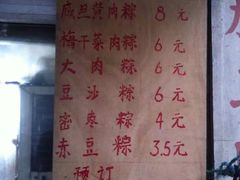 咸旦黄肉粽 8元
梅干菜肉粽 6元
大肉粽 6元
豆沙粽 6元
密枣粽 4元
赤豆粽 3.5元
预订